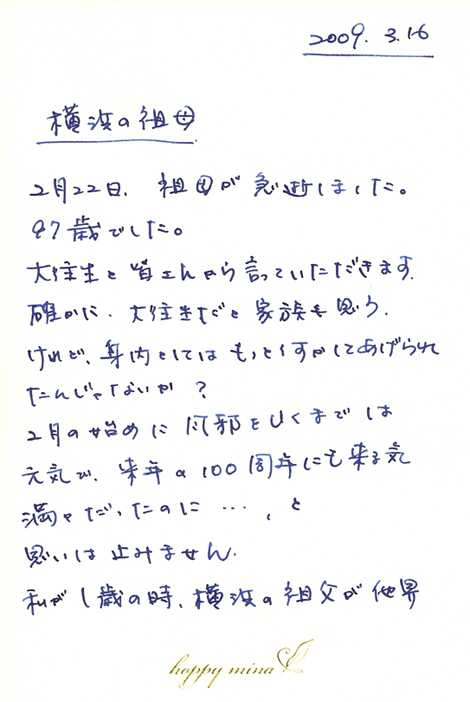 2009. 3.16
横浜の祖母
2月22日、祖母が急逝しました。
97歳でした。
大往生と皆さんから言っていただきます。
確かに、大往生だと家族も思う。
けれど、身内としてはもっと してあげられ
たんじゃないか?
2月の始めに風邪をひくまでは
元気で、来年の100周年にも来る気
満々だったのに…、と
思いは止みません。
私が1歳の時、横浜の祖父が他界
happy mina